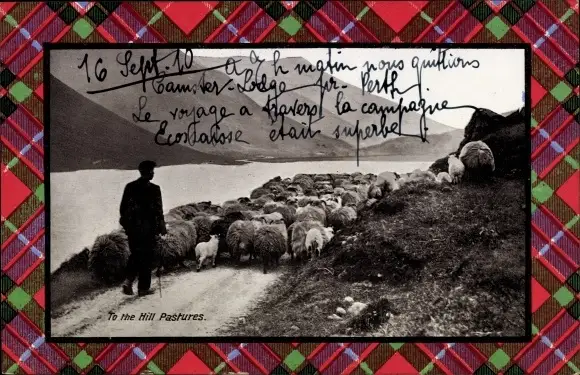 16 Sept. 10 a 7 h matin nous quittions
Camster-Lodge pr. Perth.
Le voyage a travers la campagne
Ecossaise etait superbe.
To the Hill Pastures.